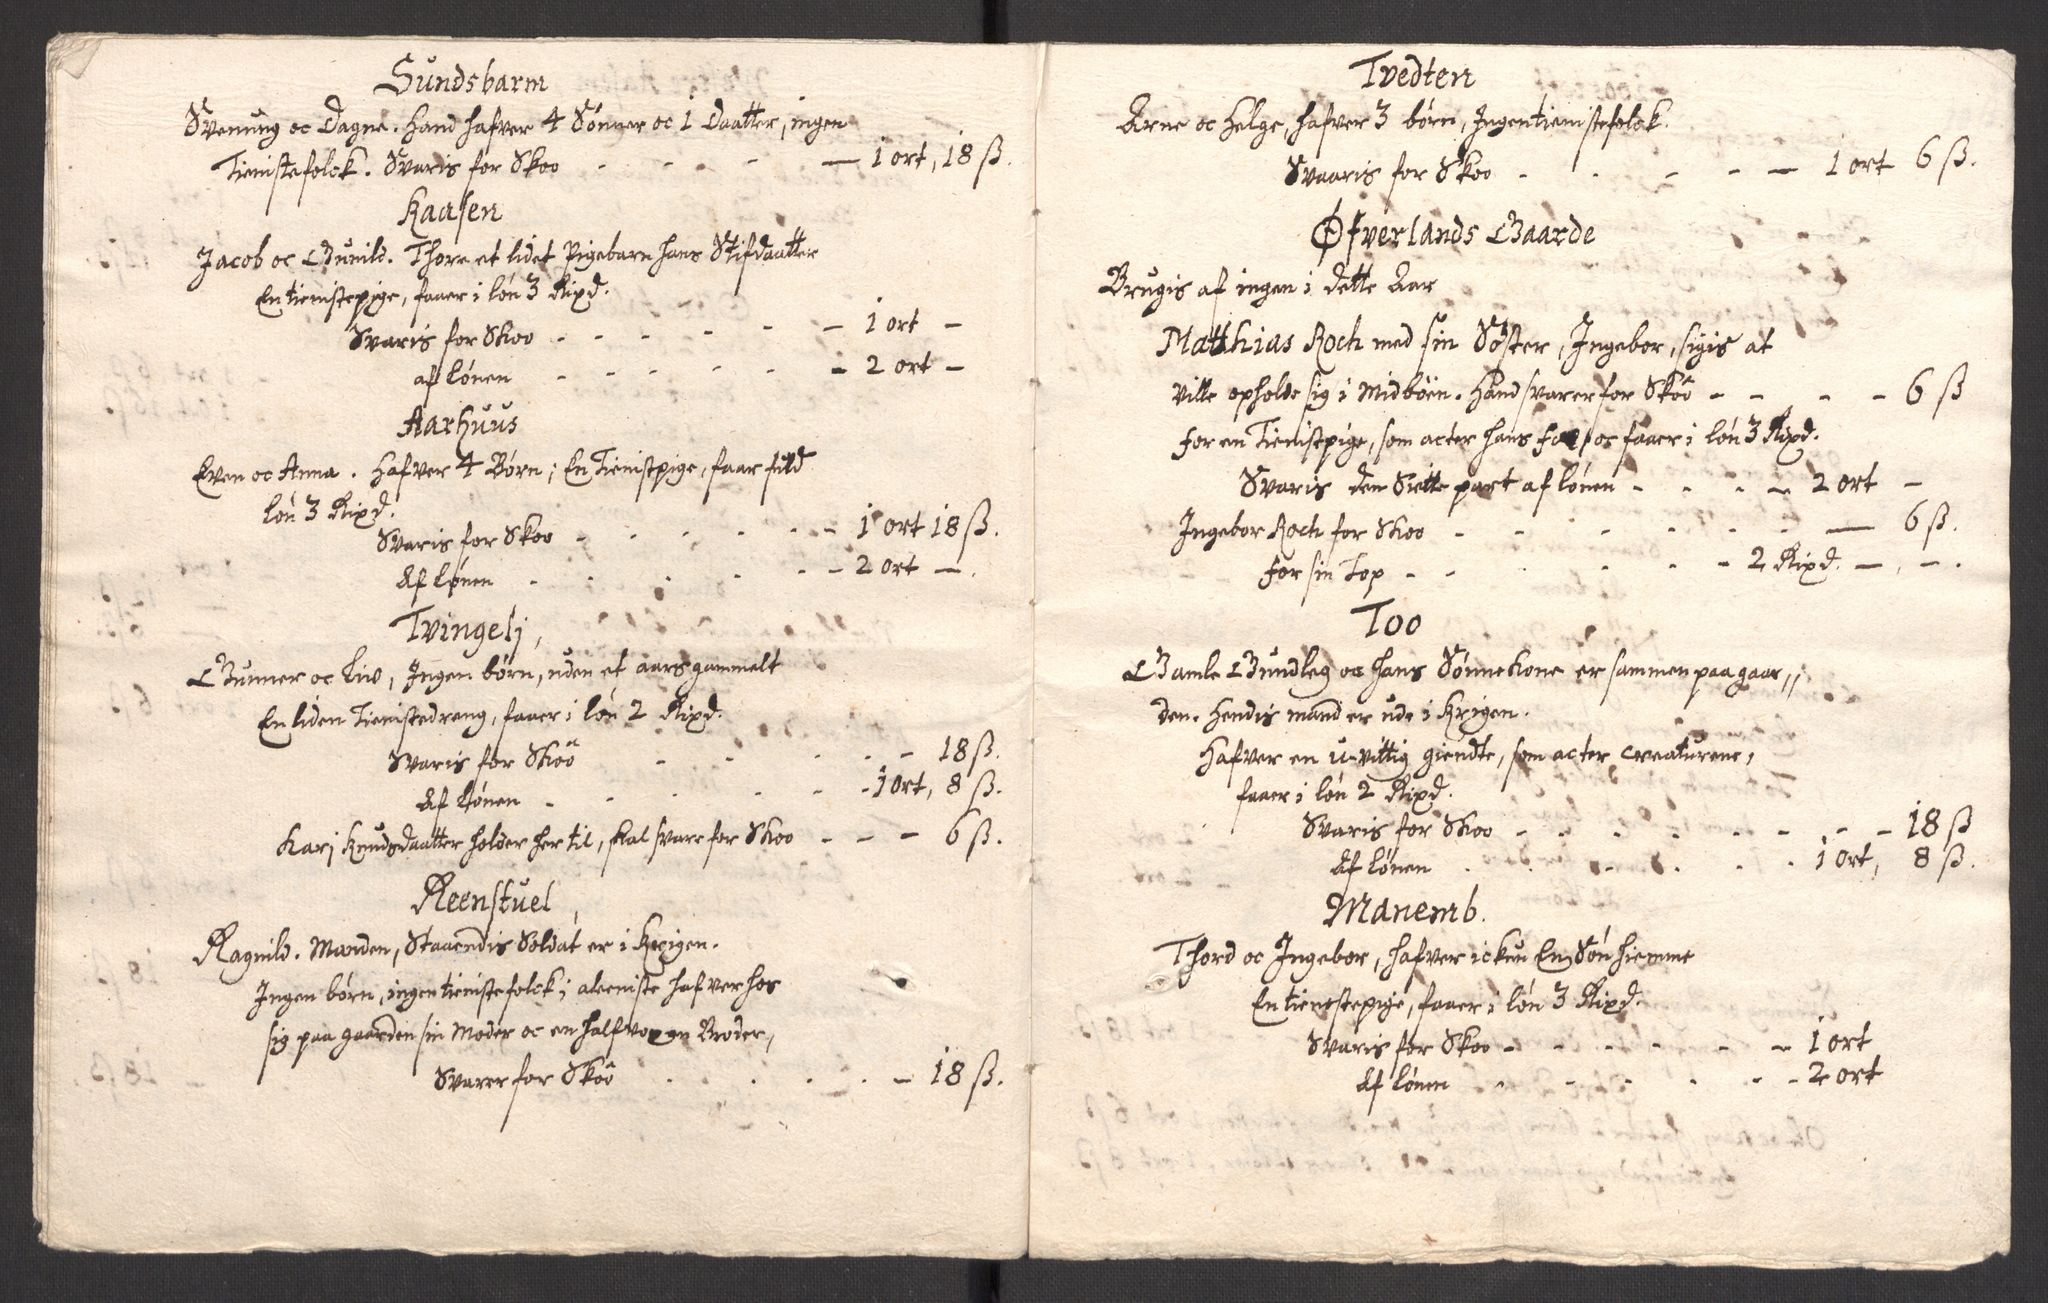 Sundsbarm
Svenung oc Dagne. Hand hafver 4 Sønner oc 1 Daatter, ingen
Tienistefolck. Svaris for Skoo - - - - 1 ort, 18 ß.
Kaasen
Jacob oc Gunild. Thore et lidet Pigebarn hans Stifdaatter
En tienistepige, faaer i løn 3 Rixd.
Svaris for Skoo - - - - - - 1 ort -
af lønen - - - - - - 2 ort -
Aarhuus
Even oc Anna. Hafver 4 Børn; En Tienistpige, faar fuld
løn 3 Rixd.
Svaris for Skoo - - - - - - 1 ort 18 ß.
Af lønen - - - - - - 2 ort -.
Tvingelj,
Gunner oc Liv, Ingen børn, uden et aars gammelt
En liden Tienistedreng, faaer i løn 2 Rixd.
Svaris for Skoo - - - - - 18 ß.
Af Lønen - - - - - - 1 ort, 8 ß.
Karj Knudsdaatter holder her til, skal svare for Skoo - - - 6 ß.
Reenstuel,
Ragnild. Manden, Staaendis Soldat er i Krigen.
Ingen børn, ingen tienistefolck; aleeniste hafver hos
sig paa gaarden sin Moder oc en halfvoxen Broder,
Svarer for Skoo - - - - - 18 ß.
Tvedten
Arne oc Helge, hafver 3 børn, Ingen tienistefolck.
Svaaris for Skoo - - - - - 1 ort 6 ß.
Øfverlands Gaarde
Brugis af ingen i dette Aar
Matthias Roch med sin Søster, Ingebor, sigis at
ville opholde sig i Midbøen. Hand svarer for Skoo - - - - 6 ß
for en Tienistpige, som acter hans oc faaer i løn 3 Rixd.
Svaris den Siette part af lønen - - - - 2 ort -
Ingebor Roch for Skoo - - - - - - - 6 ß.
for sin Top - - - - - - 2 Rixd. - . - .
Too
Gamle Gundleg oc hans Sønnekone er sammen paa gaar,,
den. Hendis mand er ude i Krigen.
Hafver en u-vittig giendte, som acter creaturene,
faaer i løn 2 Rixd.
Svaris for Skoo - - - - - - - - 18 ß
Af lønen - - - - - - 1 ort, 8 ß.
Manemb.
Thord oc Ingebor, hafver ickun En Søn hiemme
En tienestepige, faaer i løn 3 Rixd.
Svaris for Skoo - - - - - - 1 ort
Af lønen - - - - - - 2 ort